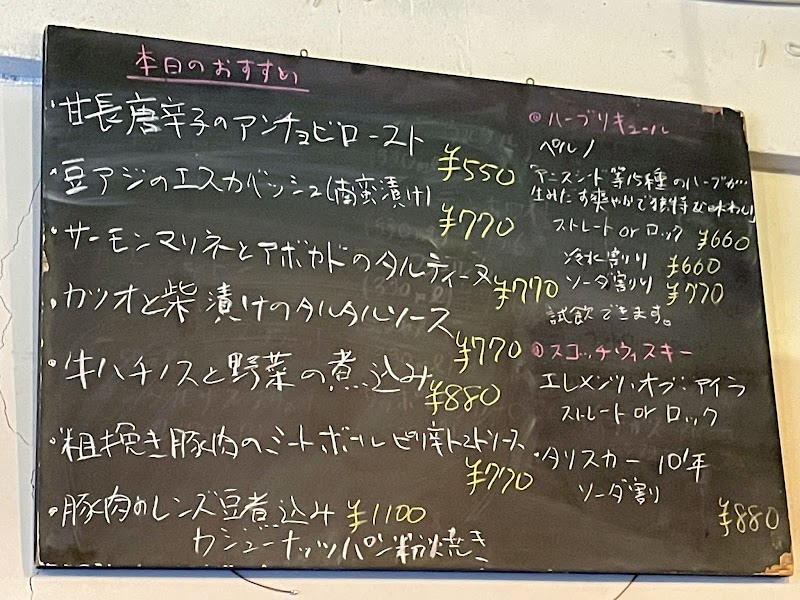 本日のおすすめ
・甘長唐辛子のアンチョビロースト
¥550
・豆アジのエスカベッシュ(南蛮漬け)
¥770
・サーモンマリネとアボカドのタルティーヌ
¥770
・カツオと柴漬けのタルタルソース
¥770
・牛ハチノスと野菜の煮込み
¥880
・粗挽き豚肉のミートボールピリ辛トマトソース
¥770
・豚肉のレンズ豆煮込み ¥1100
カシューナッツパン粉焼き
◎ハーブリキュール
ペルノ
「アニスシード等15種のハーブが…
生みだす爽やかで独特な味わい」
ストレート or ロック ¥660
冷水割り ¥660
ソーダ割り ¥770
試飲できます。
◎スコッチウィスキー
エレメンツ・オブ・アイラ
ストレート or ロック
・タリスカー 10年
ソーダ割り
¥880